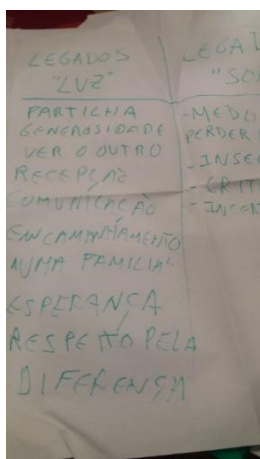 LEGADOS
"LUZ"
PARTILHA
GENEROSIDADE
VER O OUTRO
RECEPÇAO
COMUNICAÇÃO
ENCAMINHAMENTO
NUMA FAMILIA"
ESPERANÇA
RESPEITO PELA
DIFERENSA
- MEDO
PERDER